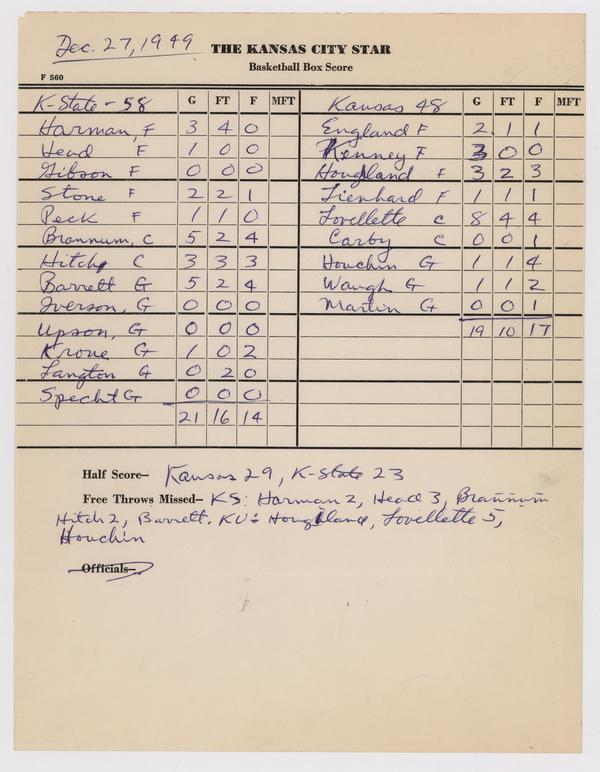 Dec. 27, 1949 THE KANSAS CITY STAR
Basketball Box Score
F 560
K-State - 58 G FT F MFT Kansas 48 G FT F MFT
Harman, F 3 4 0 England F 2 1 1
Head F 1 0 0 Kenney F 3 0 0
Gibson F 0 0 0 Hougland F 3 2 3
Stone F 2 2 1 Lienhard F 1 1 1
Peck F 1 1 0 Lovellette C 8 4 4
Brannum, C 5 2 4 Carby C 0 0 1
Hitch C 3 3 3 Houchin G 1 1 4
Barrett G 5 2 4 Waugh G 1 1 2
Iverson, G 0 0 0 Martin G 0 0 1
Upson, G 0 0 0 19 10 17
Krone G 1 0 2
Langton G 0 2 0
Specht G 0 0 0
21 16 14
Half Score— Kansas 29, K-State 23
Free Throws Missed— KS: Harman 2, Head 3, Brannum
Hitch 2, Barrett. KU: Hougland, Lovellette 5,
Houchin
Officials—